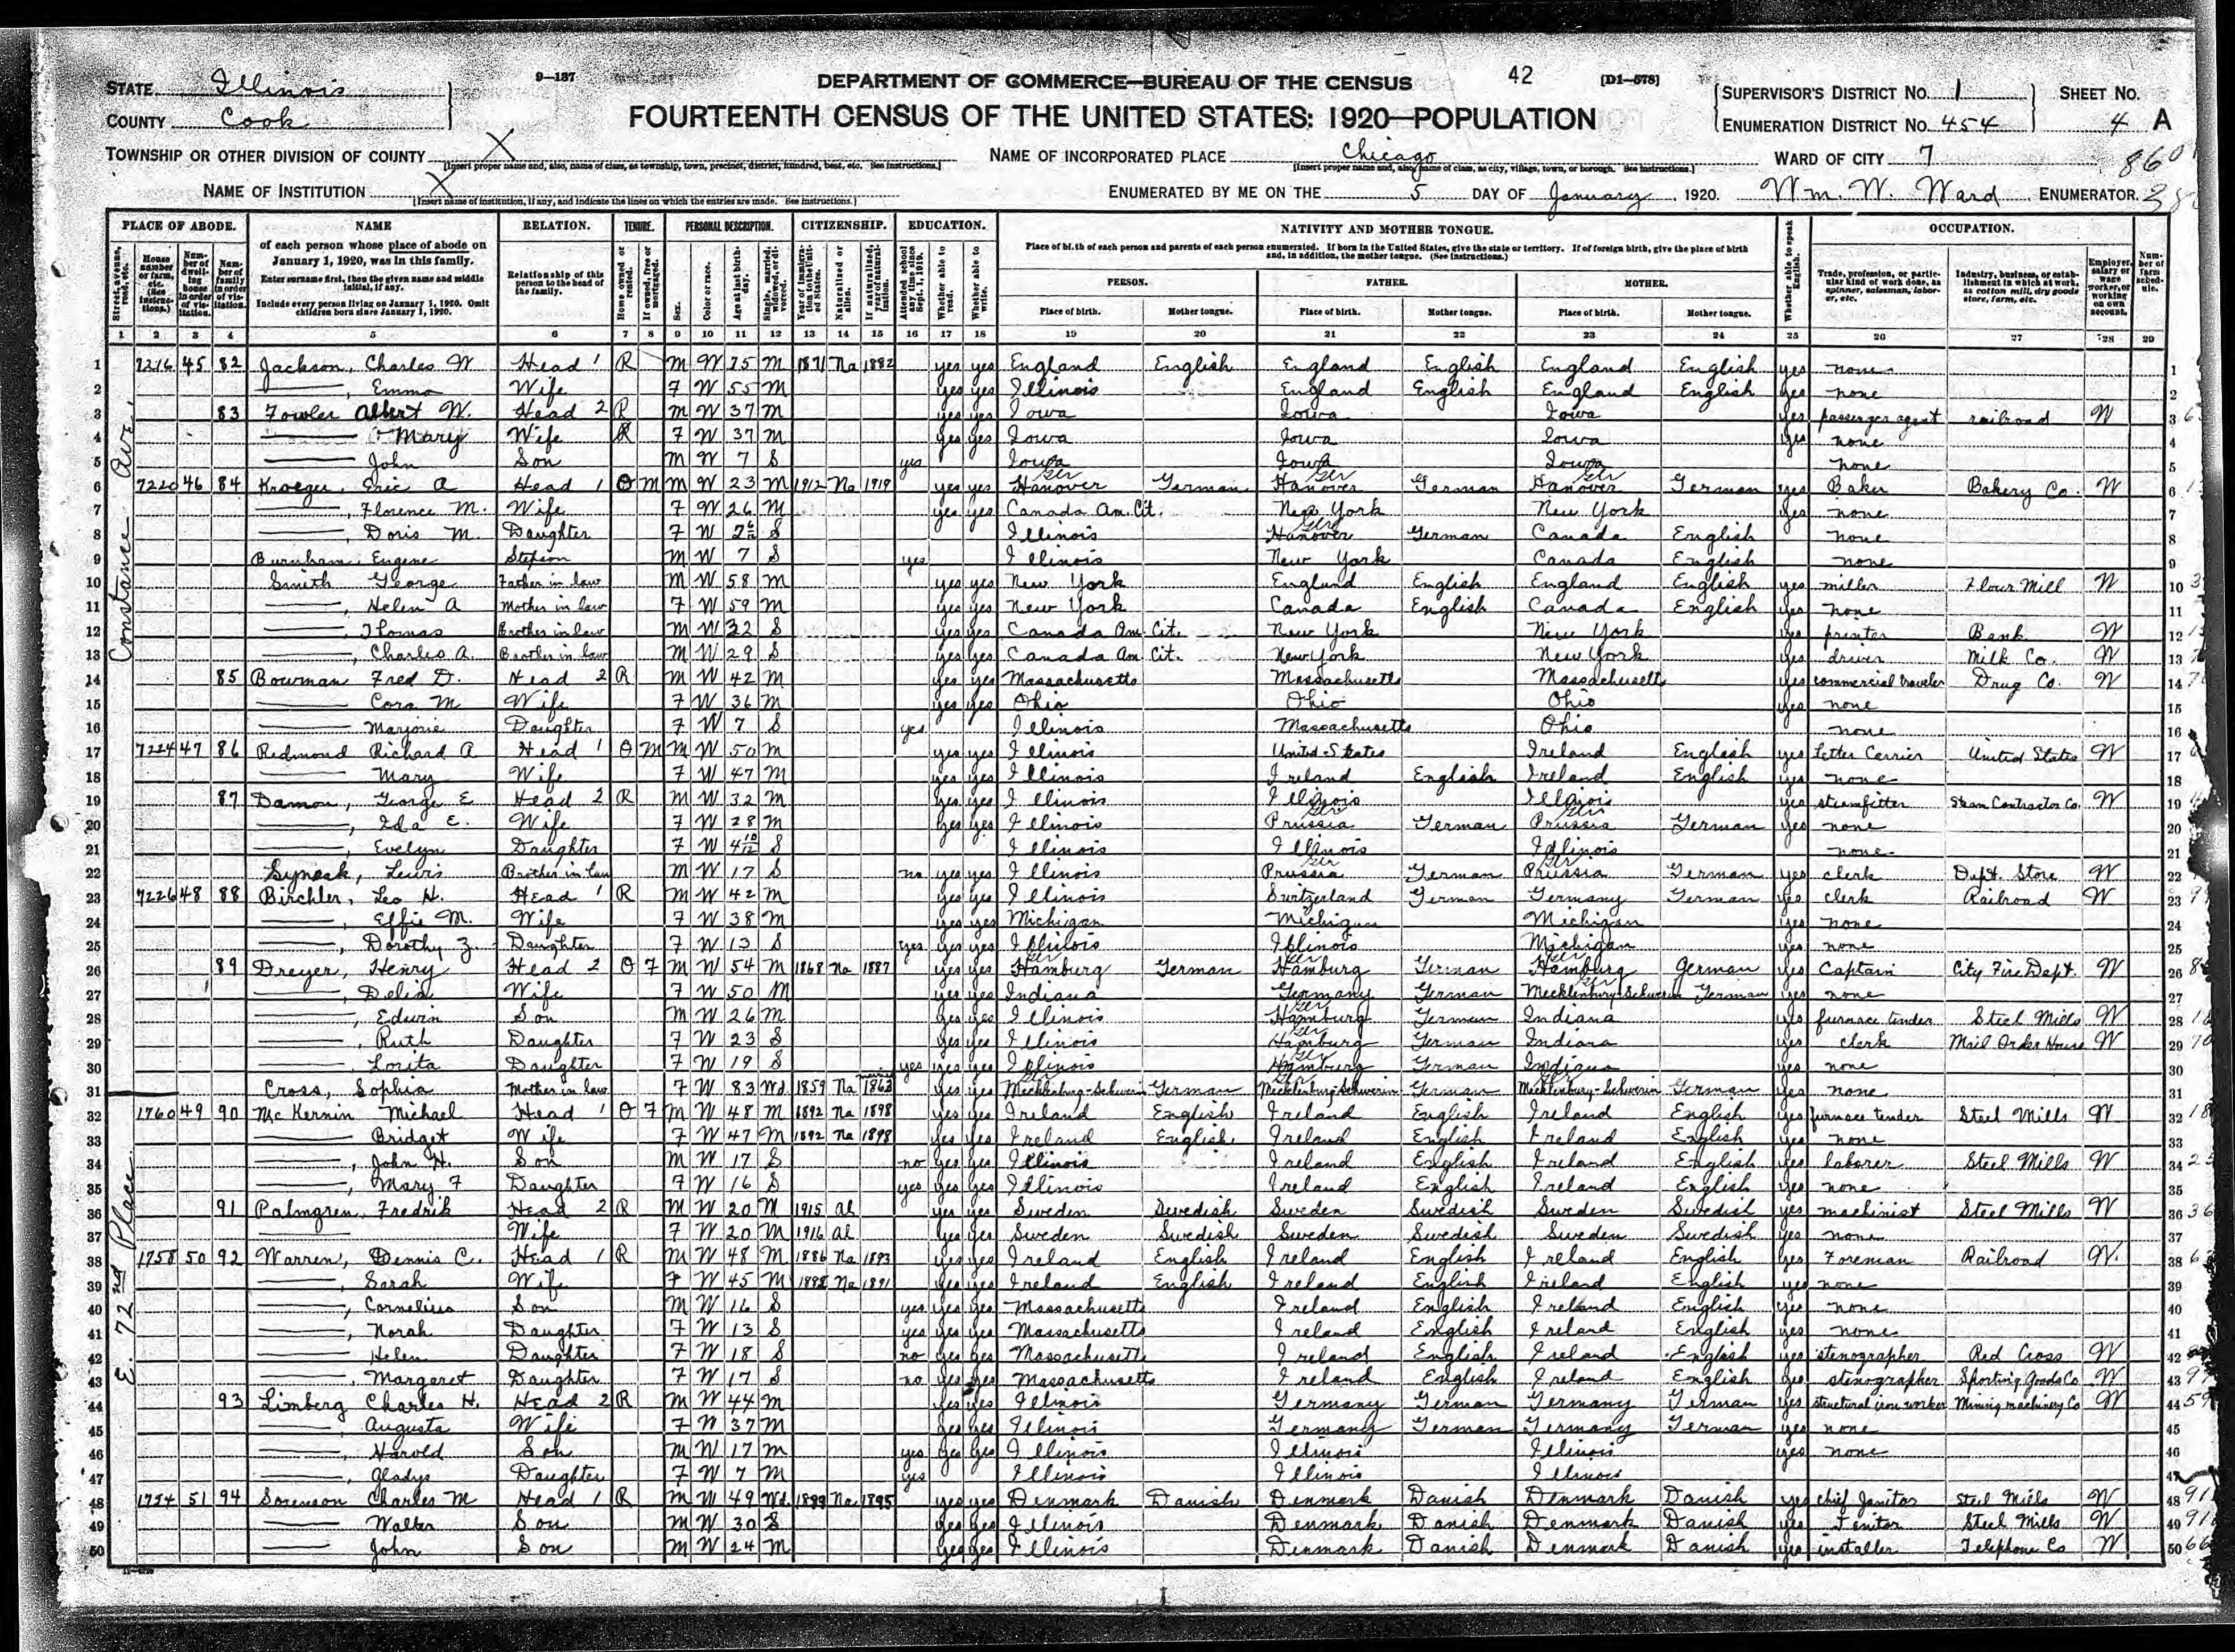 9—137
DEPARTMENT OF COMMERCE—BUREAU OF THE CENSUS
42
[D1—578]
STATE Illinois
COUNTY Cook
FOURTEENTH CENSUS OF THE UNITED STATES: 1920—POPULATION
SUPERVISOR'S DISTRICT No. 1
SHEET No.
ENUMERATION DISTRICT No. 454
4 A
TOWNSHIP OR OTHER DIVISION OF COUNTY X
NAME OF INCORPORATED PLACE Chicago
WARD OF CITY 7
[Insert proper name and, also, name of class, as township, town, precinct, district, hundred, beat, etc. See instructions.]
[Insert proper name and, also, name of class, as city, village, town, or borough. See instructions.]
NAME OF INSTITUTION X
ENUMERATED BY ME ON THE 5 DAY OF January, 1920. Wm. W. Ward ENUMERATOR.
[Insert name of institution, if any, and indicate the lines on which the entries are made. See instructions.]
PLACE OF ABODE. NAME RELATION. TENURE. PERSONAL DESCRIPTION. CITIZENSHIP. EDUCATION. NATIVITY AND MOTHER TONGUE. OCCUPATION.
of each person whose place of abode on January 1, 1920, was in this family.
Enter surname first, then the given name and middle initial, if any.
Include every person living on January 1, 1920. Omit children born since January 1, 1920.
Relationship of this person to the head of the family.
Place of birth of each person and parents of each person enumerated. If born in the United States, give the state or territory. If of foreign birth, give the place of birth and, in addition, the mother tongue. (See instructions.)
PERSON. FATHER. MOTHER.
Place of birth. Mother tongue. Place of birth. Mother tongue. Place of birth. Mother tongue.
1 2 3 4 5 6 7 8 9 10 11 12 13 14 15 16 17 18 19 20 21 22 23 24 25 26 27 28 29
Constance Ave.
1 7216 45 82 Jackson, Charles W Head 1 R M W 75 M 1871 Na 1882 yes yes England English England English England English yes none 1
2 —, Emma Wife F W 55 M yes yes Illinois England English England English yes none 2
3 83 Fowler Albert W. Head 2 R M W 37 M yes yes Iowa Iowa Iowa yes passenger agent railroad W 3
4 — Mary Wife R F W 37 M yes yes Iowa Iowa Iowa yes none 4
5 — John Son M W 7 S yes Iowa Iowa Iowa none 5
6 7220 46 84 Kroeger, Eric A Head 1 O M M W 23 M 1912 Na 1919 yes yes Hanover Ger German Hanover Ger German Hanover Ger German yes Baker Bakery Co. W 6
7 —, Florence M. Wife F W 26 M yes yes Canada Am. Cit. New York New York yes none 7
8 —, Doris M. Daughter F W 2 6/12 S Illinois Hanover Ger German Canada English none 8
9 Burnham, Eugene Stepson M W 7 S yes Illinois New York Canada English none 9
10 Smith George Father in law M W 58 M yes yes New York England English England English yes miller Flour Mill W 10
11 —, Helen A Mother in law F W 59 M yes yes New York Canada English Canada English yes none 11
12 —, Thomas Brother in law M W 32 S yes yes Canada Am. Cit. New York New York yes printer Bank W 12
13 —, Charles A. Brother in law M W 29 S yes yes Canada Am. Cit. New York New York yes driver Milk Co. W 13
14 85 Bowman Fred D. Head 2 R M W 42 M yes yes Massachusetts Massachusetts Massachusetts yes commercial traveler Drug Co. W 14
15 — Cora M Wife F W 36 M yes yes Ohio Ohio Ohio yes none 15
16 — Marjorie Daughter F W 7 S yes Illinois Massachusetts Ohio none 16
17 7224 47 86 Redmond Richard A Head 1 O M M W 50 M yes yes Illinois United States Ireland English yes Letter Carrier United States W 17
18 — Mary Wife F W 47 M yes yes Illinois Ireland English Ireland English yes none 18
19 87 Damon, George E Head 2 R M W 32 M yes yes Illinois Illinois Illinois yes steamfitter Steam Contractor Co. W 19
20 —, Ida E. Wife F W 28 M yes yes Illinois Prussia Ger German Prussia Ger German yes none 20
21 —, Evelyn Daughter F W 4 10/12 S Illinois Illinois Illinois none 21
22 Lewis Brother in law M W 17 S no yes yes Illinois Prussia Ger German Prussia Ger German yes clerk Dept. Store W 22
23 7226 48 88 Birchler, Leo H. Head 1 R M W 42 M yes yes Illinois Switzerland German Germany German yes clerk Railroad W 23
24 —, Effie M. Wife F W 38 M yes yes Michigan Michigan Michigan yes none 24
25 —, Dorothy Z. Daughter F W 13 S yes yes yes Illinois Illinois Michigan yes none 25
26 89 Dreyer, Henry Head 2 O F M W 54 M 1868 Na 1887 yes yes Hamburg Ger German Hamburg Ger German Hamburg Ger German yes Captain City Fire Dept. W 26
27 —, Delia Wife F W 50 M yes yes Indiana Germany German Mecklenburg-Schwerin Ger German yes none 27
28 —, Edwin Son M W 26 M yes yes Illinois Hamburg Ger German Indiana yes furnace tender Steel Mills W 28
29 —, Ruth Daughter F W 23 S yes yes Illinois Hamburg Ger German Indiana yes clerk Mail Order House W 29
30 —, Lorita Daughter F W 19 S yes yes yes Illinois Hamburg Ger German Indiana yes none 30
31 Cross, Sophia Mother in law F W 83 Wd 1859 Na married 1863 yes yes Mecklenburg-Schwerin German Mecklenburg-Schwerin German Mecklenburg-Schwerin German yes none 31
E. 72nd Place
32 1760 49 90 McKernin Michael Head 1 O F M W 48 M 1892 Na 1898 yes yes Ireland English Ireland English Ireland English yes furnace tender Steel Mills W 32
33 — Bridget Wife F W 47 M 1892 Na 1898 yes yes Ireland English Ireland English Ireland English yes none 33
34 —, John H. Son M W 17 S no yes yes Illinois Ireland English Ireland English yes laborer Steel Mills W 34
35 —, Mary F Daughter F W 16 S yes yes yes Illinois Ireland English Ireland English yes none 35
36 91 Palmgren, Fredrik Head 2 R M W 20 M 1915 Al yes yes Sweden Swedish Sweden Swedish Sweden Swedish yes machinist Steel Mills W 36
37 — Wife F W 20 M 1916 Al yes yes Sweden Swedish Sweden Swedish Sweden Swedish yes none 37
38 1758 50 92 Warren, Dennis C. Head 1 R M W 48 M 1886 Na 1893 yes yes Ireland English Ireland English Ireland English yes Foreman Railroad W. 38
39 —, Sarah Wife F W 45 M 1888 Na 1891 yes yes Ireland English Ireland English Ireland English yes none 39
40 —, Cornelius Son M W 16 S yes yes yes Massachusetts Ireland English Ireland English yes none 40
41 —, Norah Daughter F W 13 S yes yes yes Massachusetts Ireland English Ireland English yes none 41
42 — Helen Daughter F W 18 S no yes yes Massachusetts Ireland English Ireland English yes stenographer Red Cross W 42
43 —, Margaret Daughter F W 17 S no yes yes Massachusetts Ireland English Ireland English yes stenographer Sporting Goods Co W 43
44 93 Limberg Charles H. Head 2 R M W 44 M yes yes Illinois Germany German Germany German yes structural iron worker Mining machinery Co W 44
45 —, Augusta Wife F W 37 M yes yes Illinois Germany German Germany German yes none 45
46 —, Harold Son M W 17 M yes yes yes Illinois Illinois Illinois yes none 46
47 —, Gladys Daughter F W 7 M yes Illinois Illinois Illinois 47
48 1754 51 94 Sorenson Charles M Head 1 R M W 49 Wd 1889 Na 1895 yes yes Denmark Danish Denmark Danish Denmark Danish yes chief Janitor Steel Mills W 48
49 — Walter Son M W 30 S yes yes Illinois Denmark Danish Denmark Danish yes Jenitor Steel Mills W 49
50 — John Son M W 24 M yes yes Illinois Denmark Danish Denmark Danish yes installer Telephone Co W 50